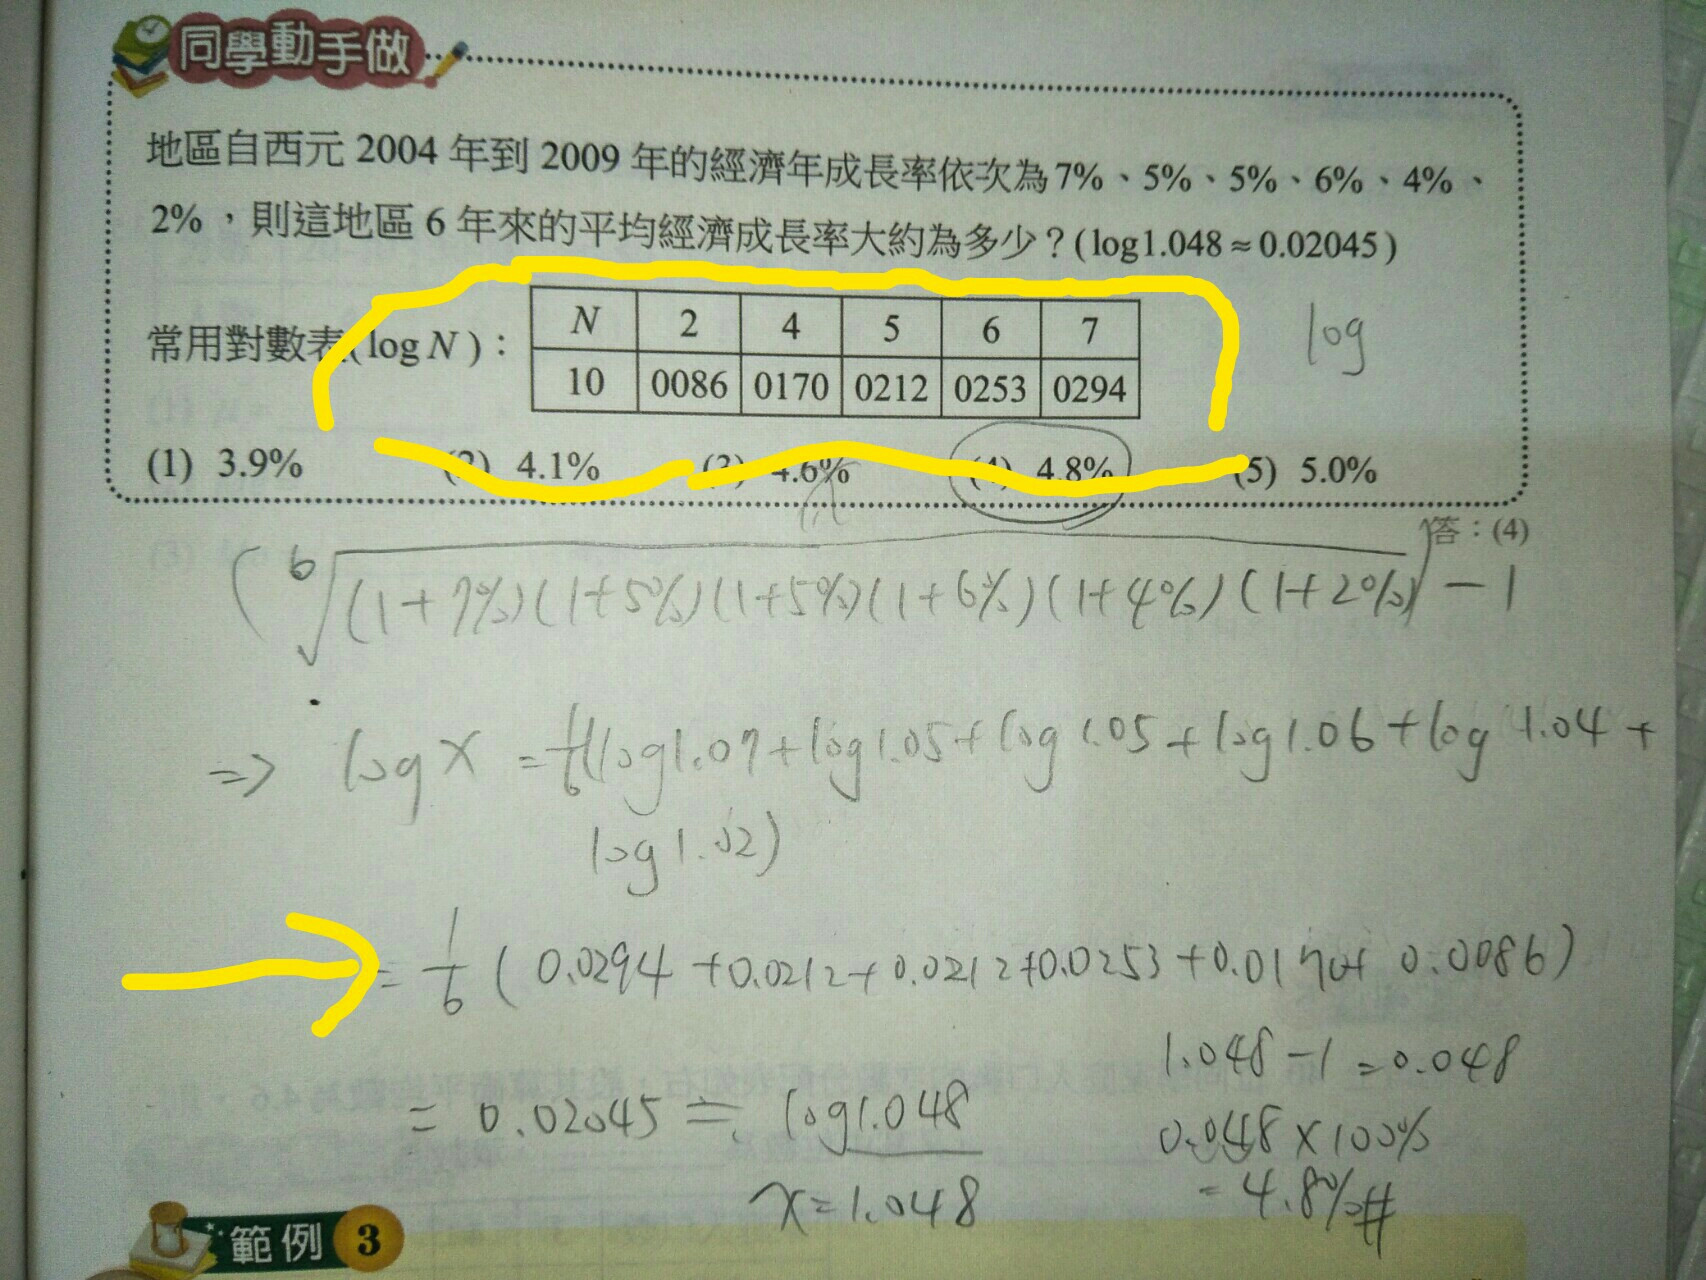 同學動手做
地區自西元 2004 年到 2009 年的經濟年成長率依次為 7%、5%、5%、6%、4%、
2%，則這地區 6 年來的平均經濟成長率大約為多少？(log1.048≈0.02045)
常用對數表(log N)：
N 2 4 5 6 7
10 0086 0170 0212 0253 0294
log
(1) 3.9% (2) 4.1% (3) 4.6% (4) 4.8% (5) 5.0%
答：(4)
(⁶√(1+7%)(1+5%)(1+5%)(1+6%)(1+4%)(1+2%)) −1
=> log x = 1/6(log1.07+log1.05+log1.05+log1.06+log1.04+
log1.02)
= 1/6 (0.0294+0.0212+0.0212+0.0253+0.0170+0.0086)
= 0.02045 ≒ log1.048
x=1.048
1.048−1=0.048
0.048×100%
=4.8%#
範例 3